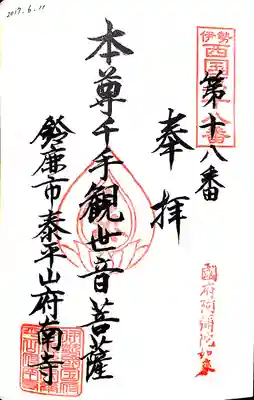 伊勢
西国
第十八番
奉拝
本尊千手観世音菩薩
鈴鹿市泰平山府南寺
國府阿彌陀如来
2017.6.11